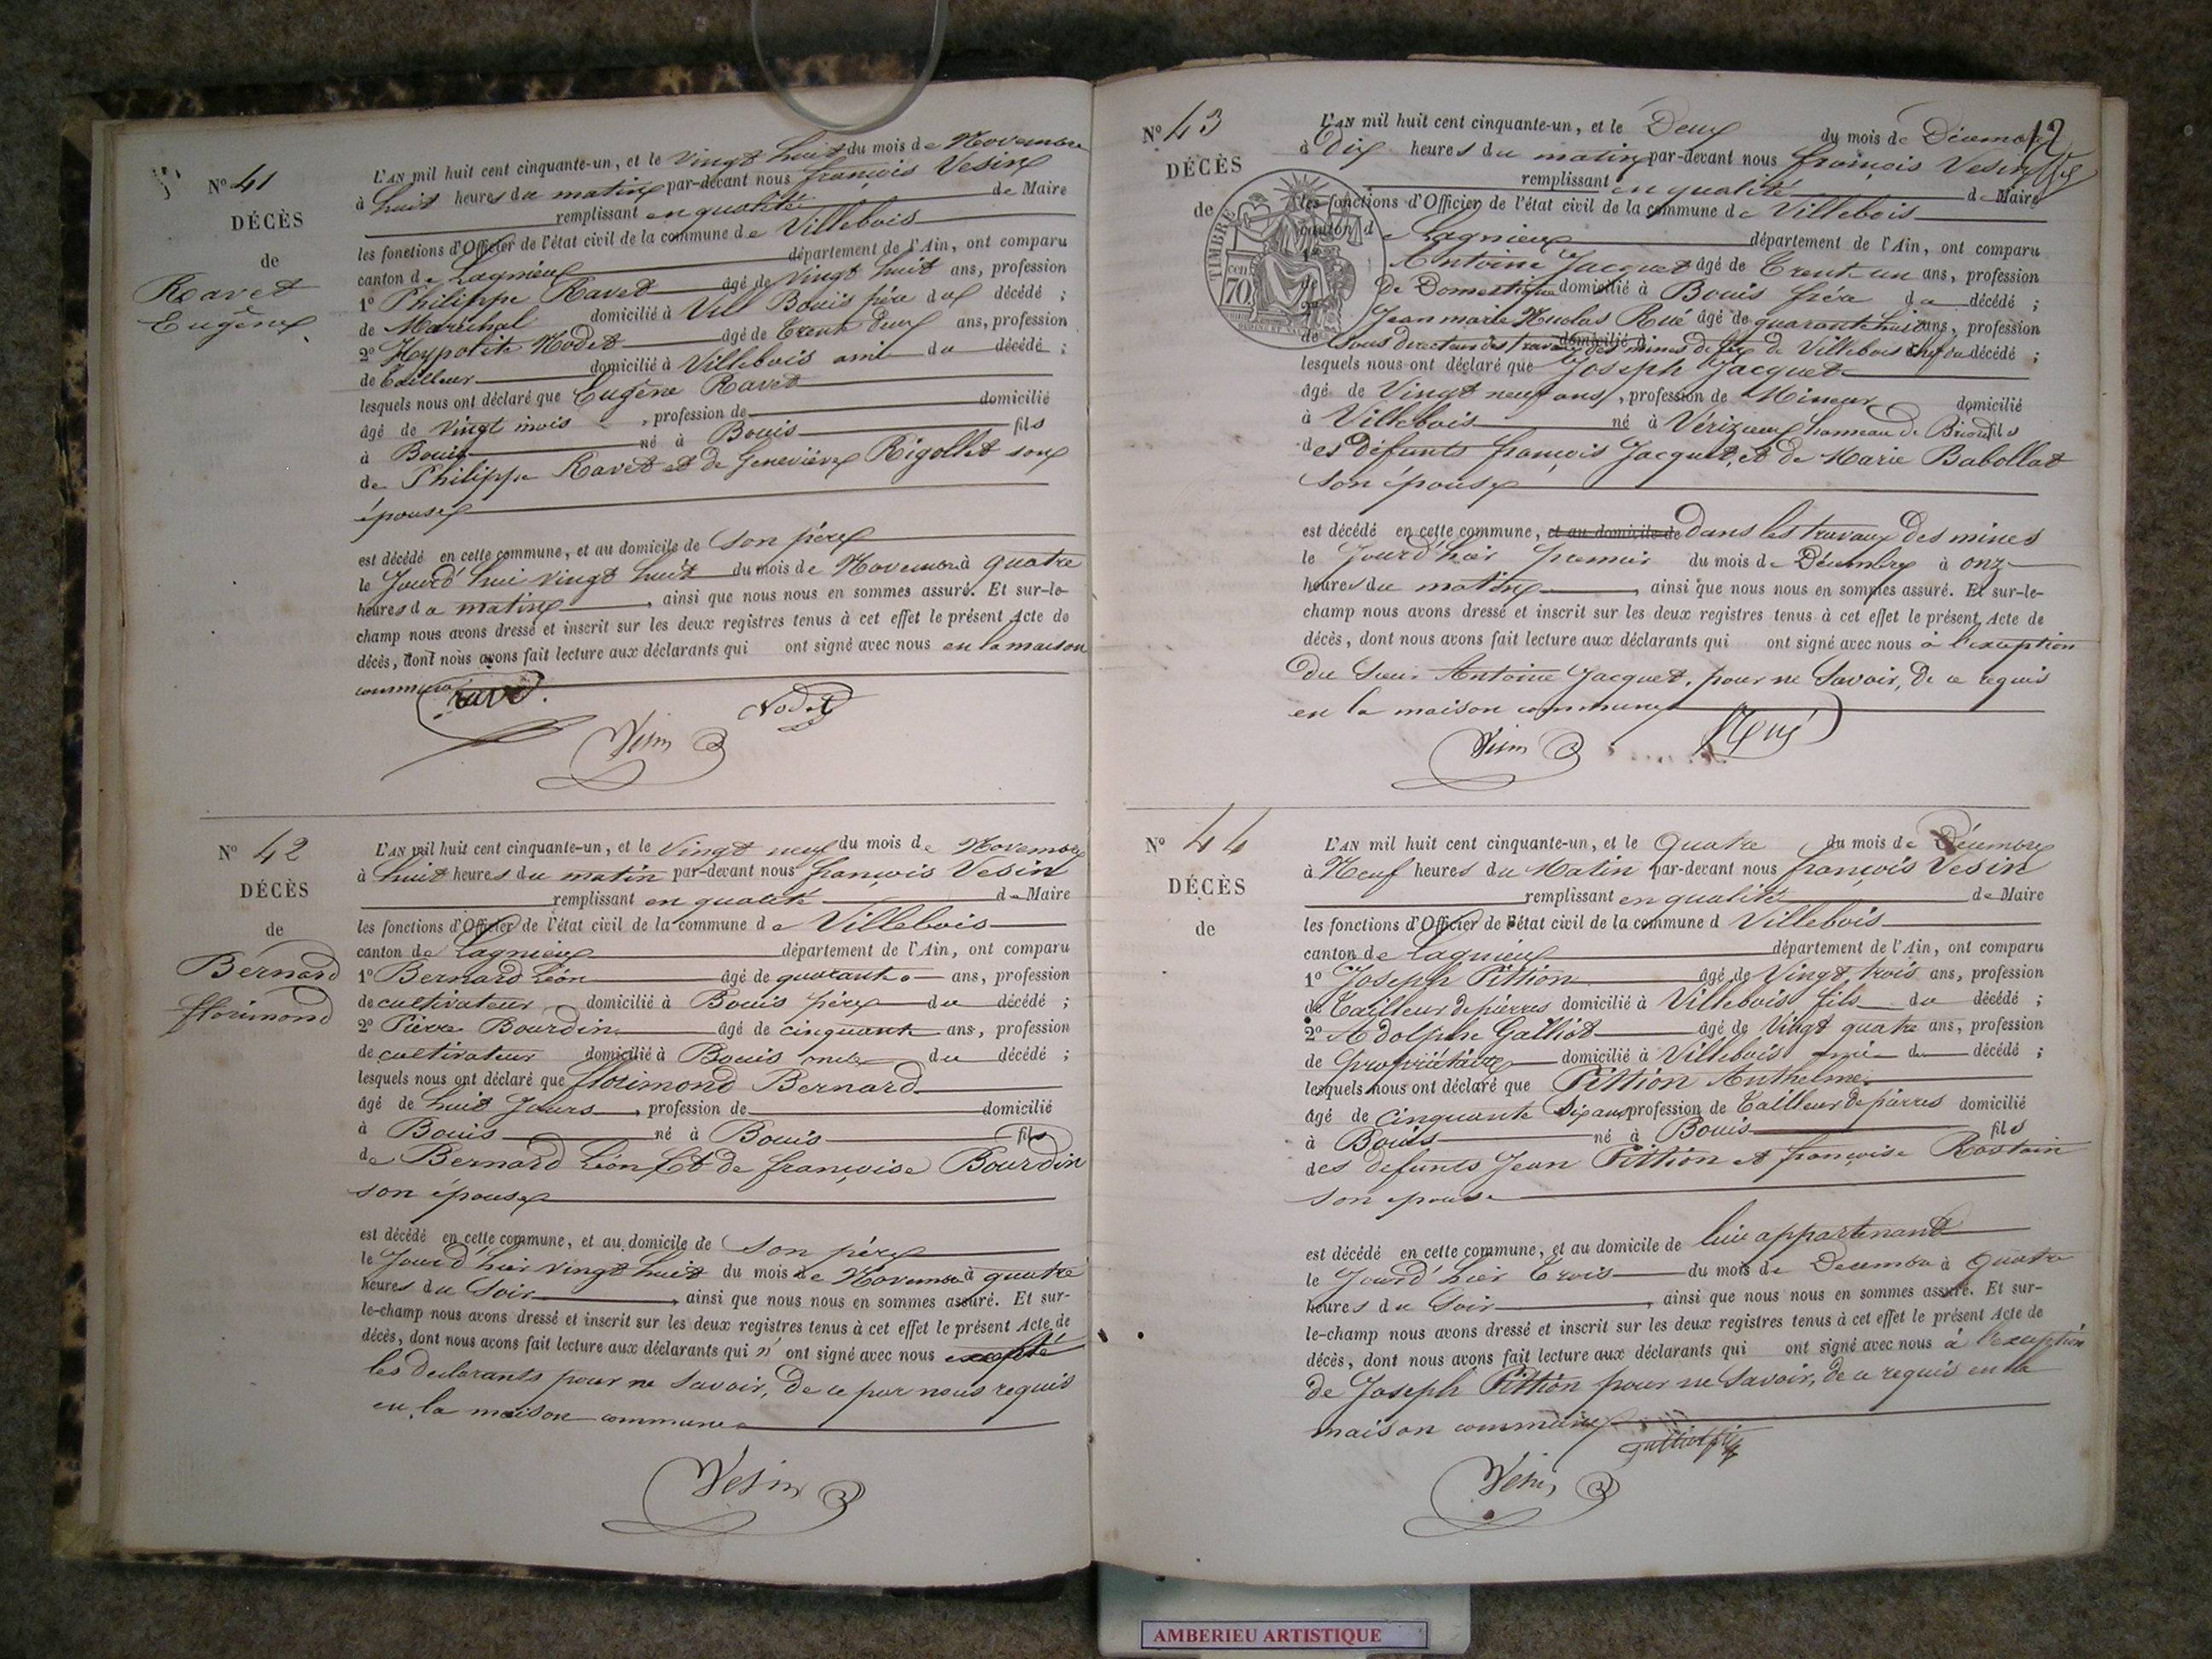 N° 41
DÉCÈS
de
Ravet
Eugène
L'AN mil huit cent cinquante-un, et le vingt huit du mois de Novembre
à huit heures du matin par-devant nous françois Vesin
remplissant en qualité de Maire
les fonctions d'Officier de l'état civil de la commune de Villebois
canton de Lagnieu département de l'Ain, ont comparu
1° Philippe Ravet âgé de vingt huit ans, profession
de Maréchal domicilié à Vill Bouis père du décédé ;
2° Hypolite Nodet âgé de Trente deux ans, profession
de Tailleur domicilié à Villebois ami du décédé ;
lesquels nous ont déclaré que Eugène Ravet
âgé de vingt mois , profession de domicilié
à Bouis né à Bouis fils
de Philippe Ravet et de Geneviève Rigollet son
épouse
est décédé en cette commune, et au domicile de son père
le Jourd'hui vingt huit du mois de Novembre à quatre
heures du matin , ainsi que nous nous en sommes assuré. Et sur-le-
champ nous avons dressé et inscrit sur les deux registres tenus à cet effet le présent Acte de
décès, dont nous avons fait lecture aux déclarants qui ont signé avec nous en la maison
commune
ravet
Nodet
Vesin
N° 42
DÉCÈS
de
Bernard
florimond
L'AN mil huit cent cinquante-un, et le Vingt neuf du mois de Novembre
à huit heures du matin par-devant nous françois Vesin
remplissant en qualité de Maire
les fonctions d'Officier de l'état civil de la commune de Villebois
canton de Lagnieu département de l'Ain, ont comparu
1° Bernard Léon âgé de quarante ans, profession
de cultivateur domicilié à Bouis père du décédé ;
2° Pierre Bourdin âgé de cinquante ans, profession
de cultivateur domicilié à Bouis oncle du décédé ;
lesquels nous ont déclaré que florimond Bernard
âgé de huit Jours , profession de domicilié
à Bouis né à Bouis fils
de Bernard Léon et de françoise Bourdin
son épouse
est décédé en cette commune, et au domicile de son père
le Jourd'hier vingt huit du mois de Novembre à quatre
heures du Soir , ainsi que nous nous en sommes assuré. Et sur-
le-champ nous avons dressé et inscrit sur les deux registres tenus à cet effet le présent Acte de
décès, dont nous avons fait lecture aux déclarants qui n' ont signé avec nous excepté
les déclarants pour ne Savoir, De ce par nous requis
en la maison commune
Vesin
N° 43
DÉCÈS
de
12
TIMBRE
cen
70
L'AN mil huit cent cinquante-un, et le Deux du mois de Décembre
à Dix heures du matin par-devant nous françois Vesin
remplissant en qualité de Maire
les fonctions d'Officier de l'état civil de la commune de Villebois
canton de Lagnieu département de l'Ain, ont comparu
1° Antoine Jacquet âgé de Trente un ans, profession
de Domestique domicilié à Bouis frère du décédé ;
2° Jean marie Nicolas Rué âgé de quarante huit ans, profession
de Sous directeur des travaux des mines de fer de Villebois chef du décédé ;
lesquels nous ont déclaré que Joseph Jacquet
âgé de Vingt neuf ans , profession de Mineur domicilié
à Villebois né à Vérizieu hameau de Briord fils
des défunts françois Jacquet, et de Marie Babollat
son épouse
est décédé en cette commune, et au domicile de Dans les travaux des mines
le Jourd'hier premier du mois de Décembre à onze
heures du matin , ainsi que nous nous en sommes assuré. Et sur-le-
champ nous avons dressé et inscrit sur les deux registres tenus à cet effet le présent Acte de
décès, dont nous avons fait lecture aux déclarants qui ont signé avec nous à l'exception
du Sieur Antoine Jacquet, pour ne Savoir, De ce requis
en la maison commune
Vesin
Rué
N° 44
DÉCÈS
de
L'AN mil huit cent cinquante-un, et le Quatre du mois de Décembre
à Neuf heures du Matin par-devant nous françois Vesin
remplissant en qualité de Maire
les fonctions d'Officier de l'état civil de la commune d Villebois
canton de Lagnieu département de l'Ain, ont comparu
1° Joseph Pittion âgé de Vingt trois ans, profession
de Tailleur de pierres domicilié à Villebois fils du décédé ;
2° Adolphe Galliot âgé de Vingt quatre ans, profession
de propriétaire domicilié à Villebois ami du décédé ;
lesquels nous ont déclaré que Pittion Anthelme
âgé de Cinquante Six ans profession de Tailleur de pierres domicilié
à Bouis né à Bouis fils
des défunts Jean Pittion et françoise Rostain
son épouse
est décédé en cette commune, et au domicile de lui appartenant
le Jourd'hier Trois du mois de Décembre à Quatre
heures du Soir , ainsi que nous nous en sommes assuré. Et sur-
le-champ nous avons dressé et inscrit sur les deux registres tenus à cet effet le présent Acte de
décès, dont nous avons fait lecture aux déclarants qui ont signé avec nous à l'exception
de Joseph Pittion pour ne Savoir, de ce requis en la
maison commune
galliot
Vesin
AMBERIEU ARTISTIQUE